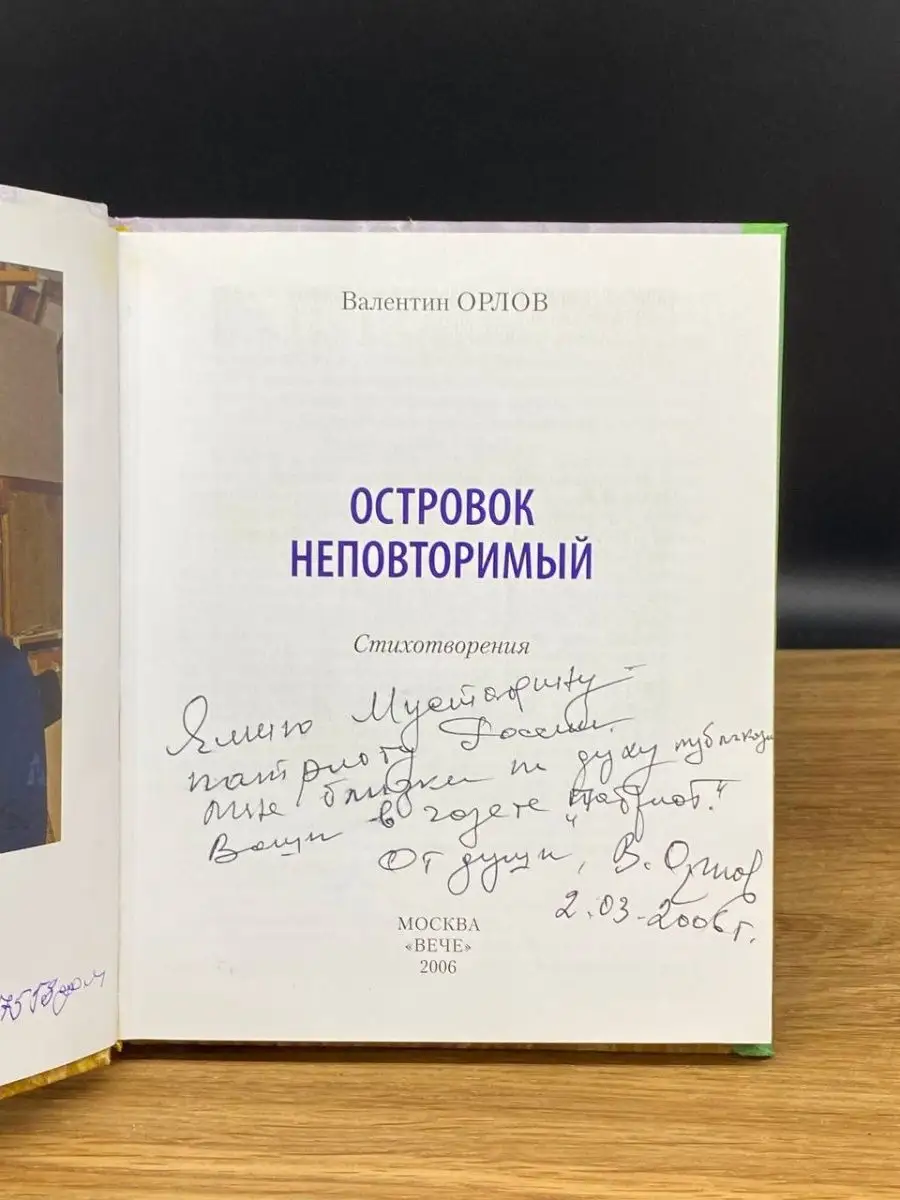 Валентин ОРЛОВ
ОСТРОВОК
НЕПОВТОРИМЫЙ
Стихотворения
Ямилю Мустафину –
патриоту России.
Мне близки по духу публикации
Ваши в газете „Патриот."
От души, В. Орлов
2.03.2006 г.
МОСКВА
«ВЕЧЕ»
2006